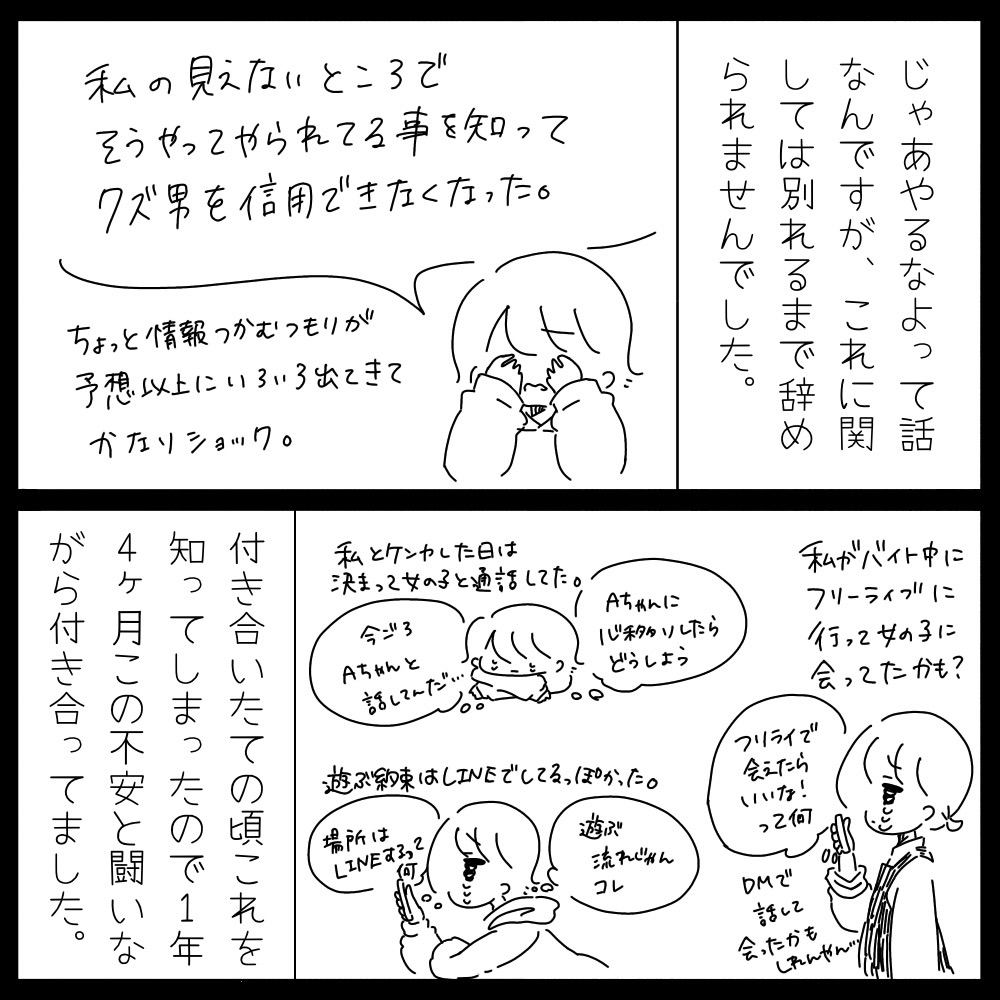 じゃあやるなよって話
なんですが、これに関
しては別れるまで辞め
られませんでした。
私の見えないところで
そうやってやられてる事を知って
クズ男を信用できなくなった。
ちょっと情報つかむつもりが
予想以上にいろいろ出てきて
かなりショック。
私がバイト中に
フリーライブに
行って女の子に
会ってたかも?
フリライで
会えたら
いいな!
って何
DMで
話して
会ったかも
しれんやん…
私とケンカした日は
決まって女の子と通話してた。
Aちゃんに
心移りしたら
どうしよう
今ごろ
Aちゃんと
話してんだ…
遊ぶ約束はLINEでしてるっぽかった。
遊ぶ
流れじゃん
コレ
場所は
LINEするって
何
付き合いたての頃これを
知ってしまったので1年
4ヶ月この不安と闘いな
がら付き合ってました。